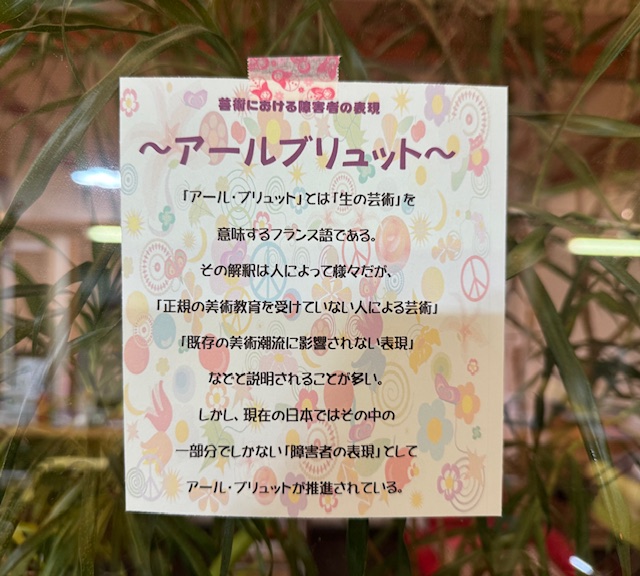 芸術における障害者の表現
～アールブリュット～
「アール・ブリュット」とは「生の芸術」を
意味するフランス語である。
その解釈は人によって様々だが、
「正規の美術教育を受けていない人による芸術」
「既存の美術潮流に影響されない表現」
などと説明されることが多い。
しかし、現在の日本ではその中の
一部分でしかない「障害者の表現」として
アール・ブリュットが推進されている。